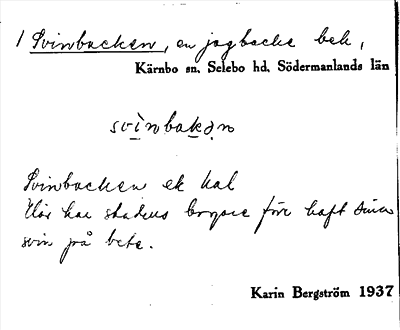 1 Svinbacken, en jagbacke bek,
Kärnbo sn, Selebo hd, Södermanlands län
svinbakən
Svinbacken ek kal
Här har stadens borgare förr haft sina
svin på bete.
Karin Bergström 1937